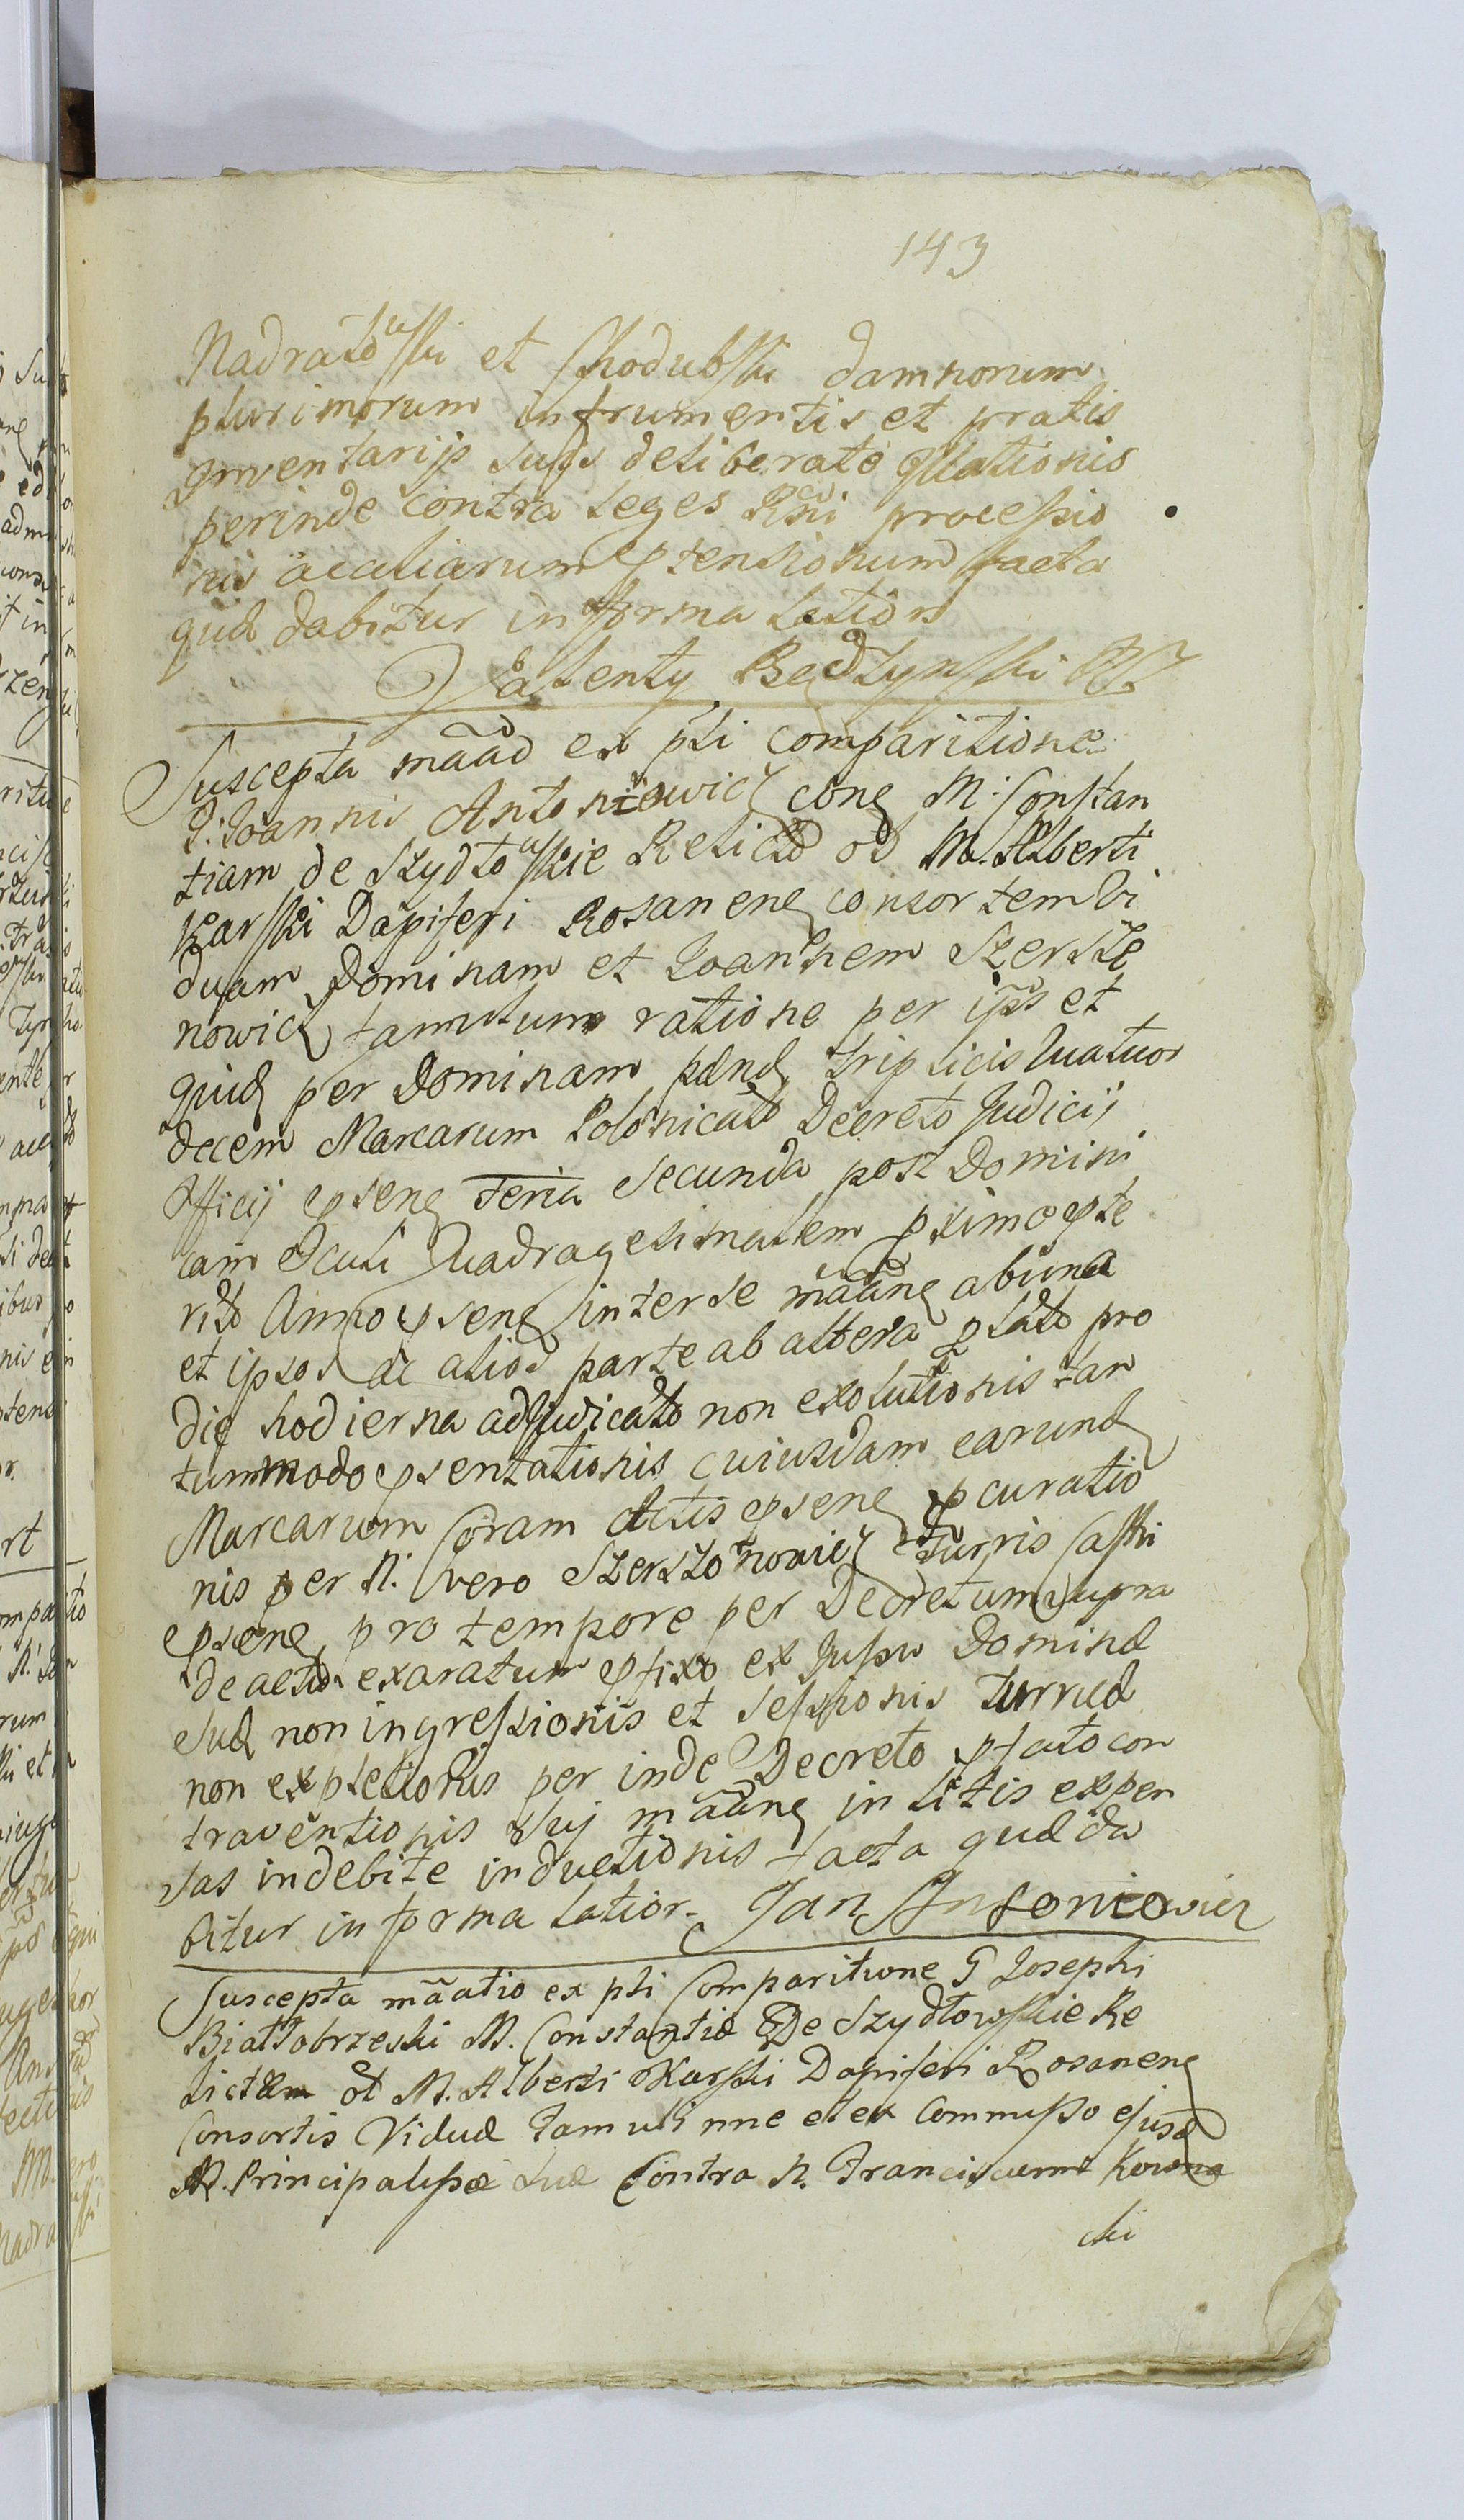 143
Nadratowski et Chodubski damnorum
plurimorum in frumentis et pratis
Inventarijs suis deliberate illationis
perinde contra leges Rni processio
nis ac aliarum ptensionum facta
quæ dabitur in forma latiori
Walenty Będzyński
Suscepta mãao ex pti comparitione
G: Joannis Antoniewicz cone M: Constan
tiam de Szydłowskie Relictã ol M. Alberti
Karski Dapiferi Rosanene consortem Vi
duam Dominam et Joannem Szerszę
nowicz famulum ratione per ipõs et
quid per Dominam pdnd triplicis Quatuor
decem Marcarum Polonicalõ Decreto Judicij
Officij psene Feria Secunda post Domini
cam Oculi Quadragesimalem pximo pte
ritõ Anno psene inter se mãane ab una
et ipsos ac alios parte ab altera lato pro
die hodierna adjudicatõ non exolutionis tan
tummodo psentationis cuiusdam earund
Marcarum Coram Actis psene pcuratio
nis per N. vero Szerszonowicz Turris Castri
psene pro tempore per Decretum supra
de actu exaratum pfixo ex Jussu Dominæ
suæ non ingressionis et sessionis turrid
non expletionis per inde Decreto pfato con
traventionis Suj mãane in litis expen
sas indebite inductionis facta quæ da
bitur in forma latior. Jan Antoniewicz
Suscepta mãatio ex pti Comparitione G Josephi
Białłobrzeski M. Constantiæ De Szydłowskie Re
lictæ ol M. Alberti Karski Dapiferi Rosanene
Consortis Viduæ Famuli nne et ex Commisso ejusd
M. Principalissæ suæ Contra N. Franciscum Kowna
cki